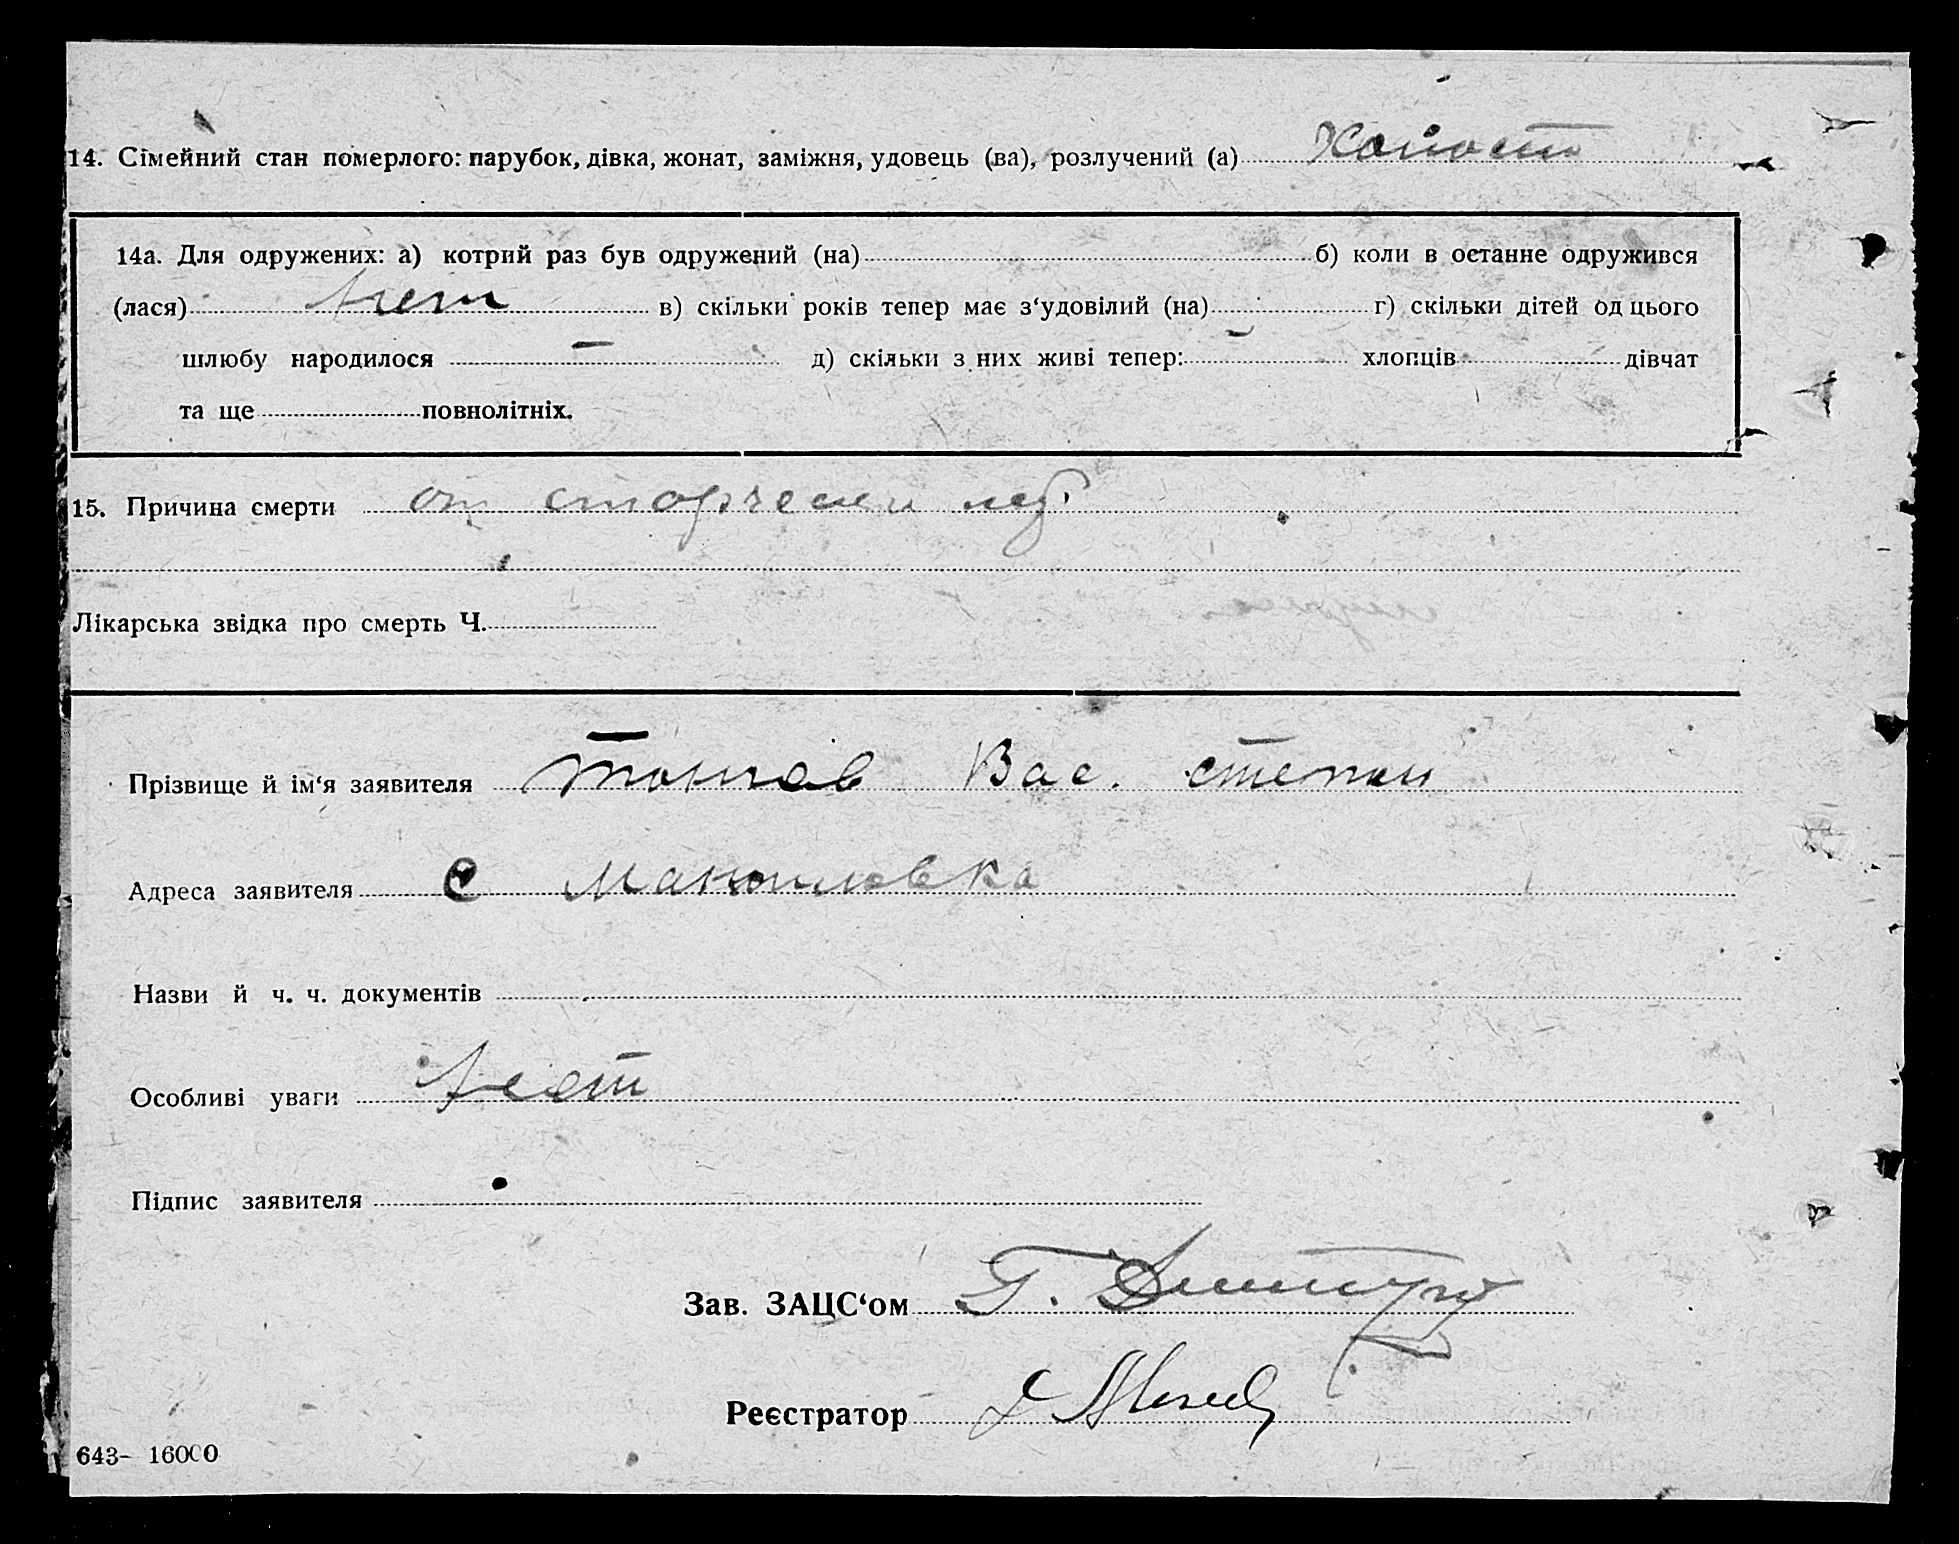 14. Сімейний стан померлого: парубок, дівка, жонат, заміжня, удовець (ва), розлучений (а) Холост
14а. Для одружених: а) котрий раз був одружений (на) б) коли в останне одружився
(лася) нет в) скільки років тепер має з‘удовілий (на) г) скільки дітей од цього
шлюбу народилося — д) скільки з них живі тепер: — хлопців дівчат
та ще повнолітніх.
15. Причина смерти от
Лікарська звідка про смерть Ч.
Прізвище й ім‘я заявителя Вас. степан
Адреса заявителя с Мануиловка
Назви й ч. ч. документів
Особливі уваги нет
Підпис заявителя
Зав. ЗАЦС‘ом Г.
Реєстратор
643– 16000